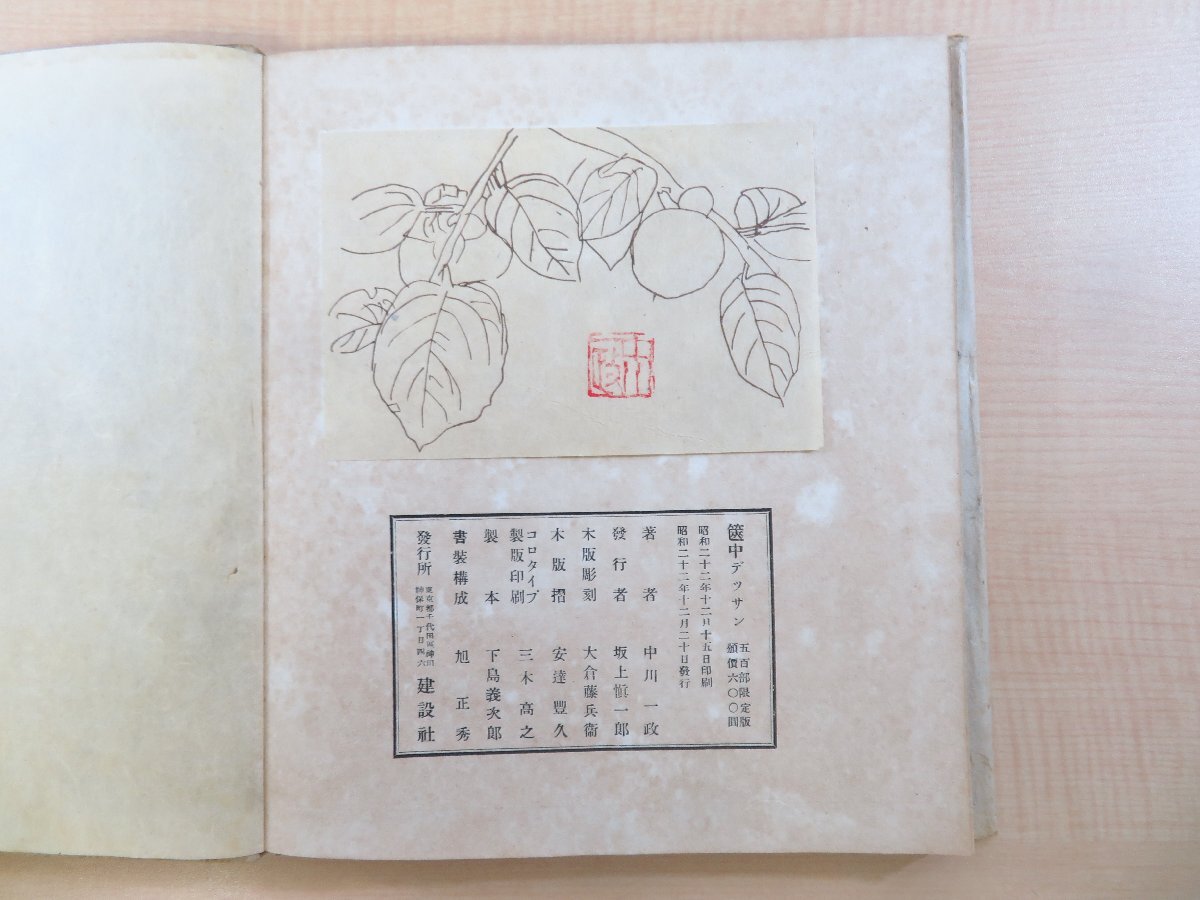 篋中デッサン 五百部限定版
頒價六〇〇圓
昭和二十二年十二月十五日印刷
昭和二十二年十二月二十日發行
著者 中川一政
發行者 坂上愼一郎
木版彫刻 大倉藤兵衞
木版摺 安達豐久
コロタイプ製版印刷 三木高之
製本 下島義次郎
書裝構成 旭正秀
發行所 東京都千代田區神田
神保町一丁目四六 建設社